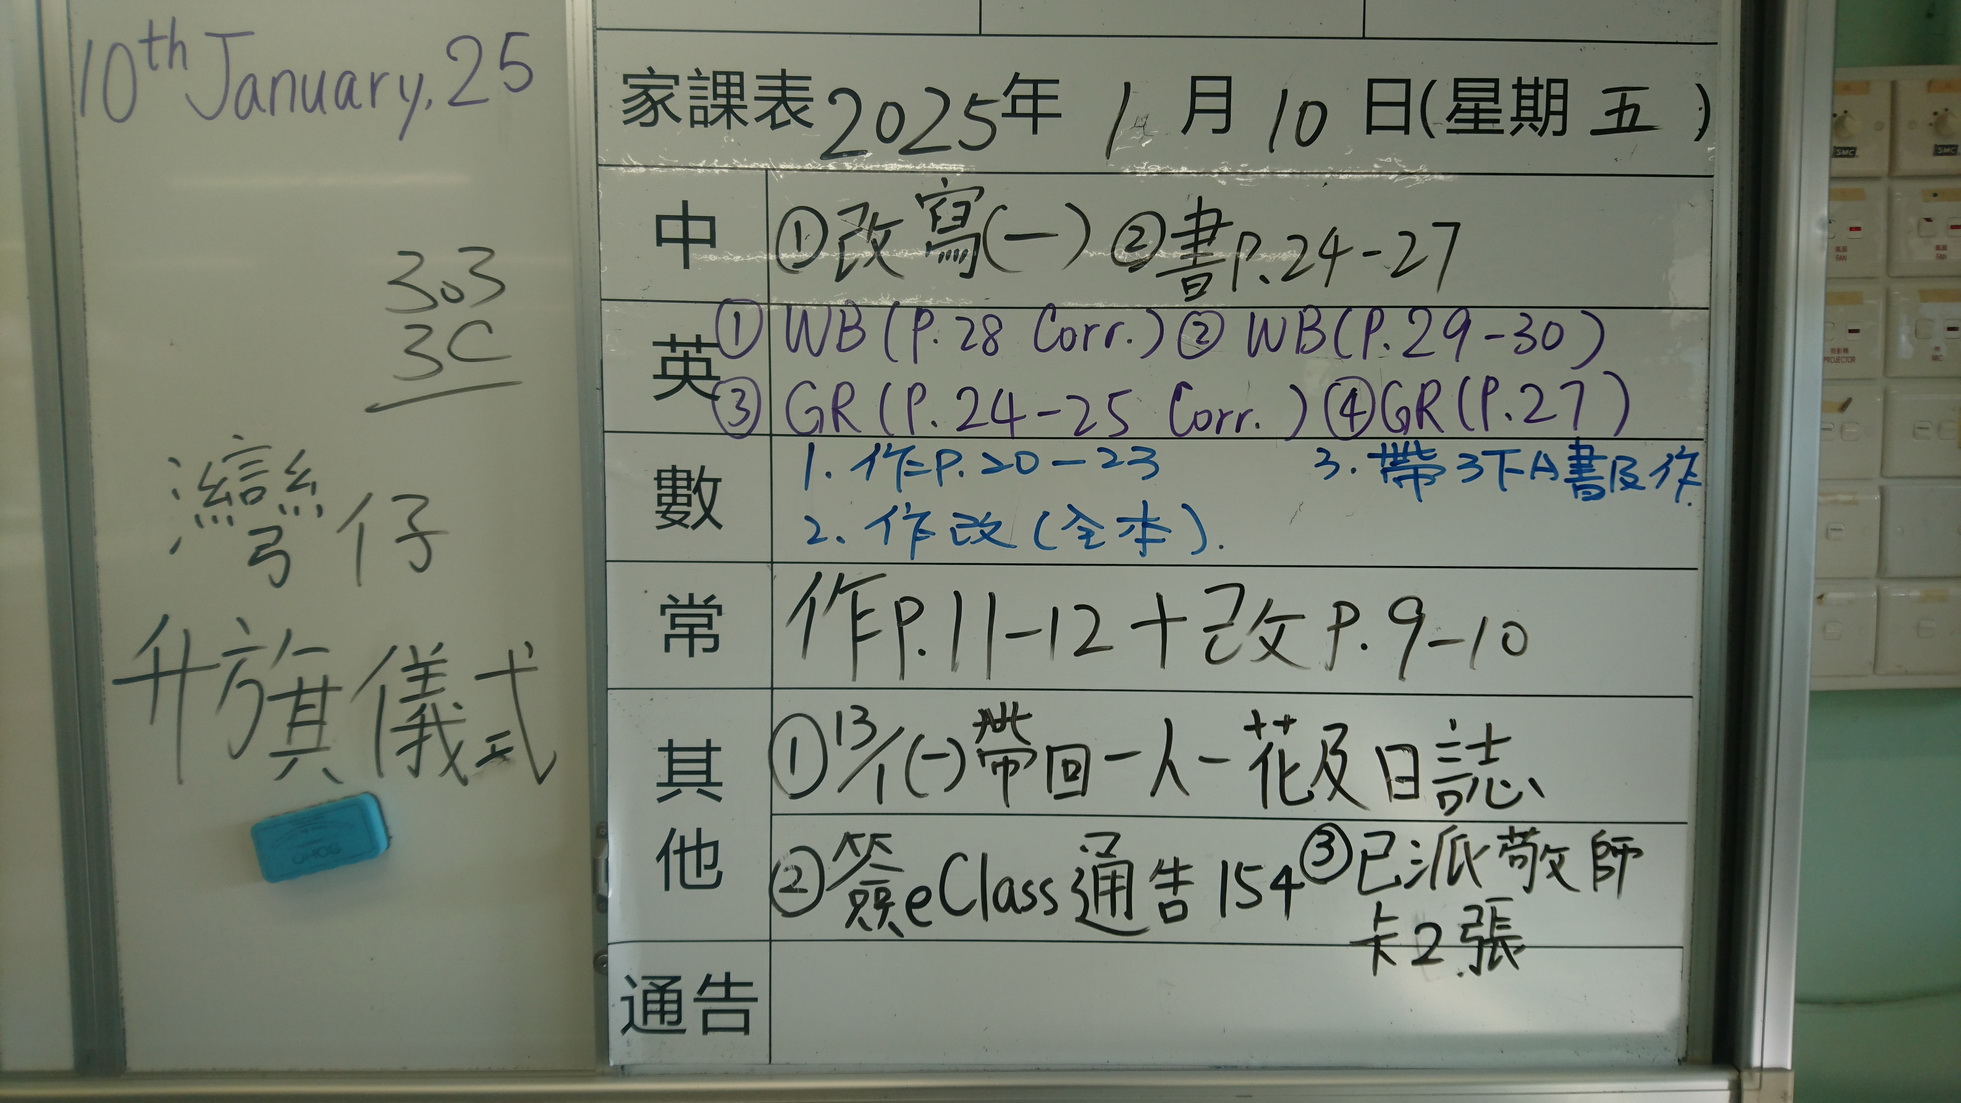 10th January, 25
303
3C
灣仔
升旗儀式
家課表2025年 1 月 10 日(星期 五 )
中 ①改寫(一) ②書P.24-27
英 ① WB (P.28 Corr.) ② WB(P.29-30)
③ GR (P.24-25 Corr.) ④GR(P.27)
數 1. 作P.20-23 3. 帶3下A書及作
2. 作改(全本).
常 作P.11-12 + 改P.9-10
其他 ①13/1(一)帶回一人一花及日誌
②簽eClass通告154 ③已派敬師
卡2張
通告
SMC SMC
FAN FAN
PROJECTOR